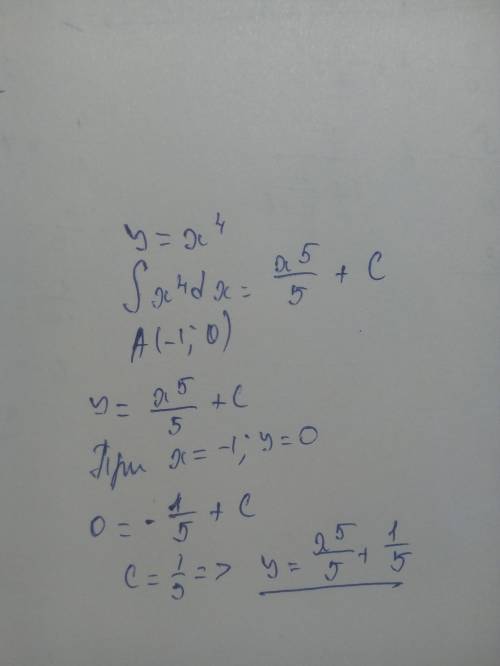 y = x⁴
∫x⁴dx = x⁵/5 + C
A(-1; 0)
y = x⁵/5 + C
При x = -1; y = 0
0 = -1/5 + C
C = 1/5 => y = x⁵/5 + 1/5